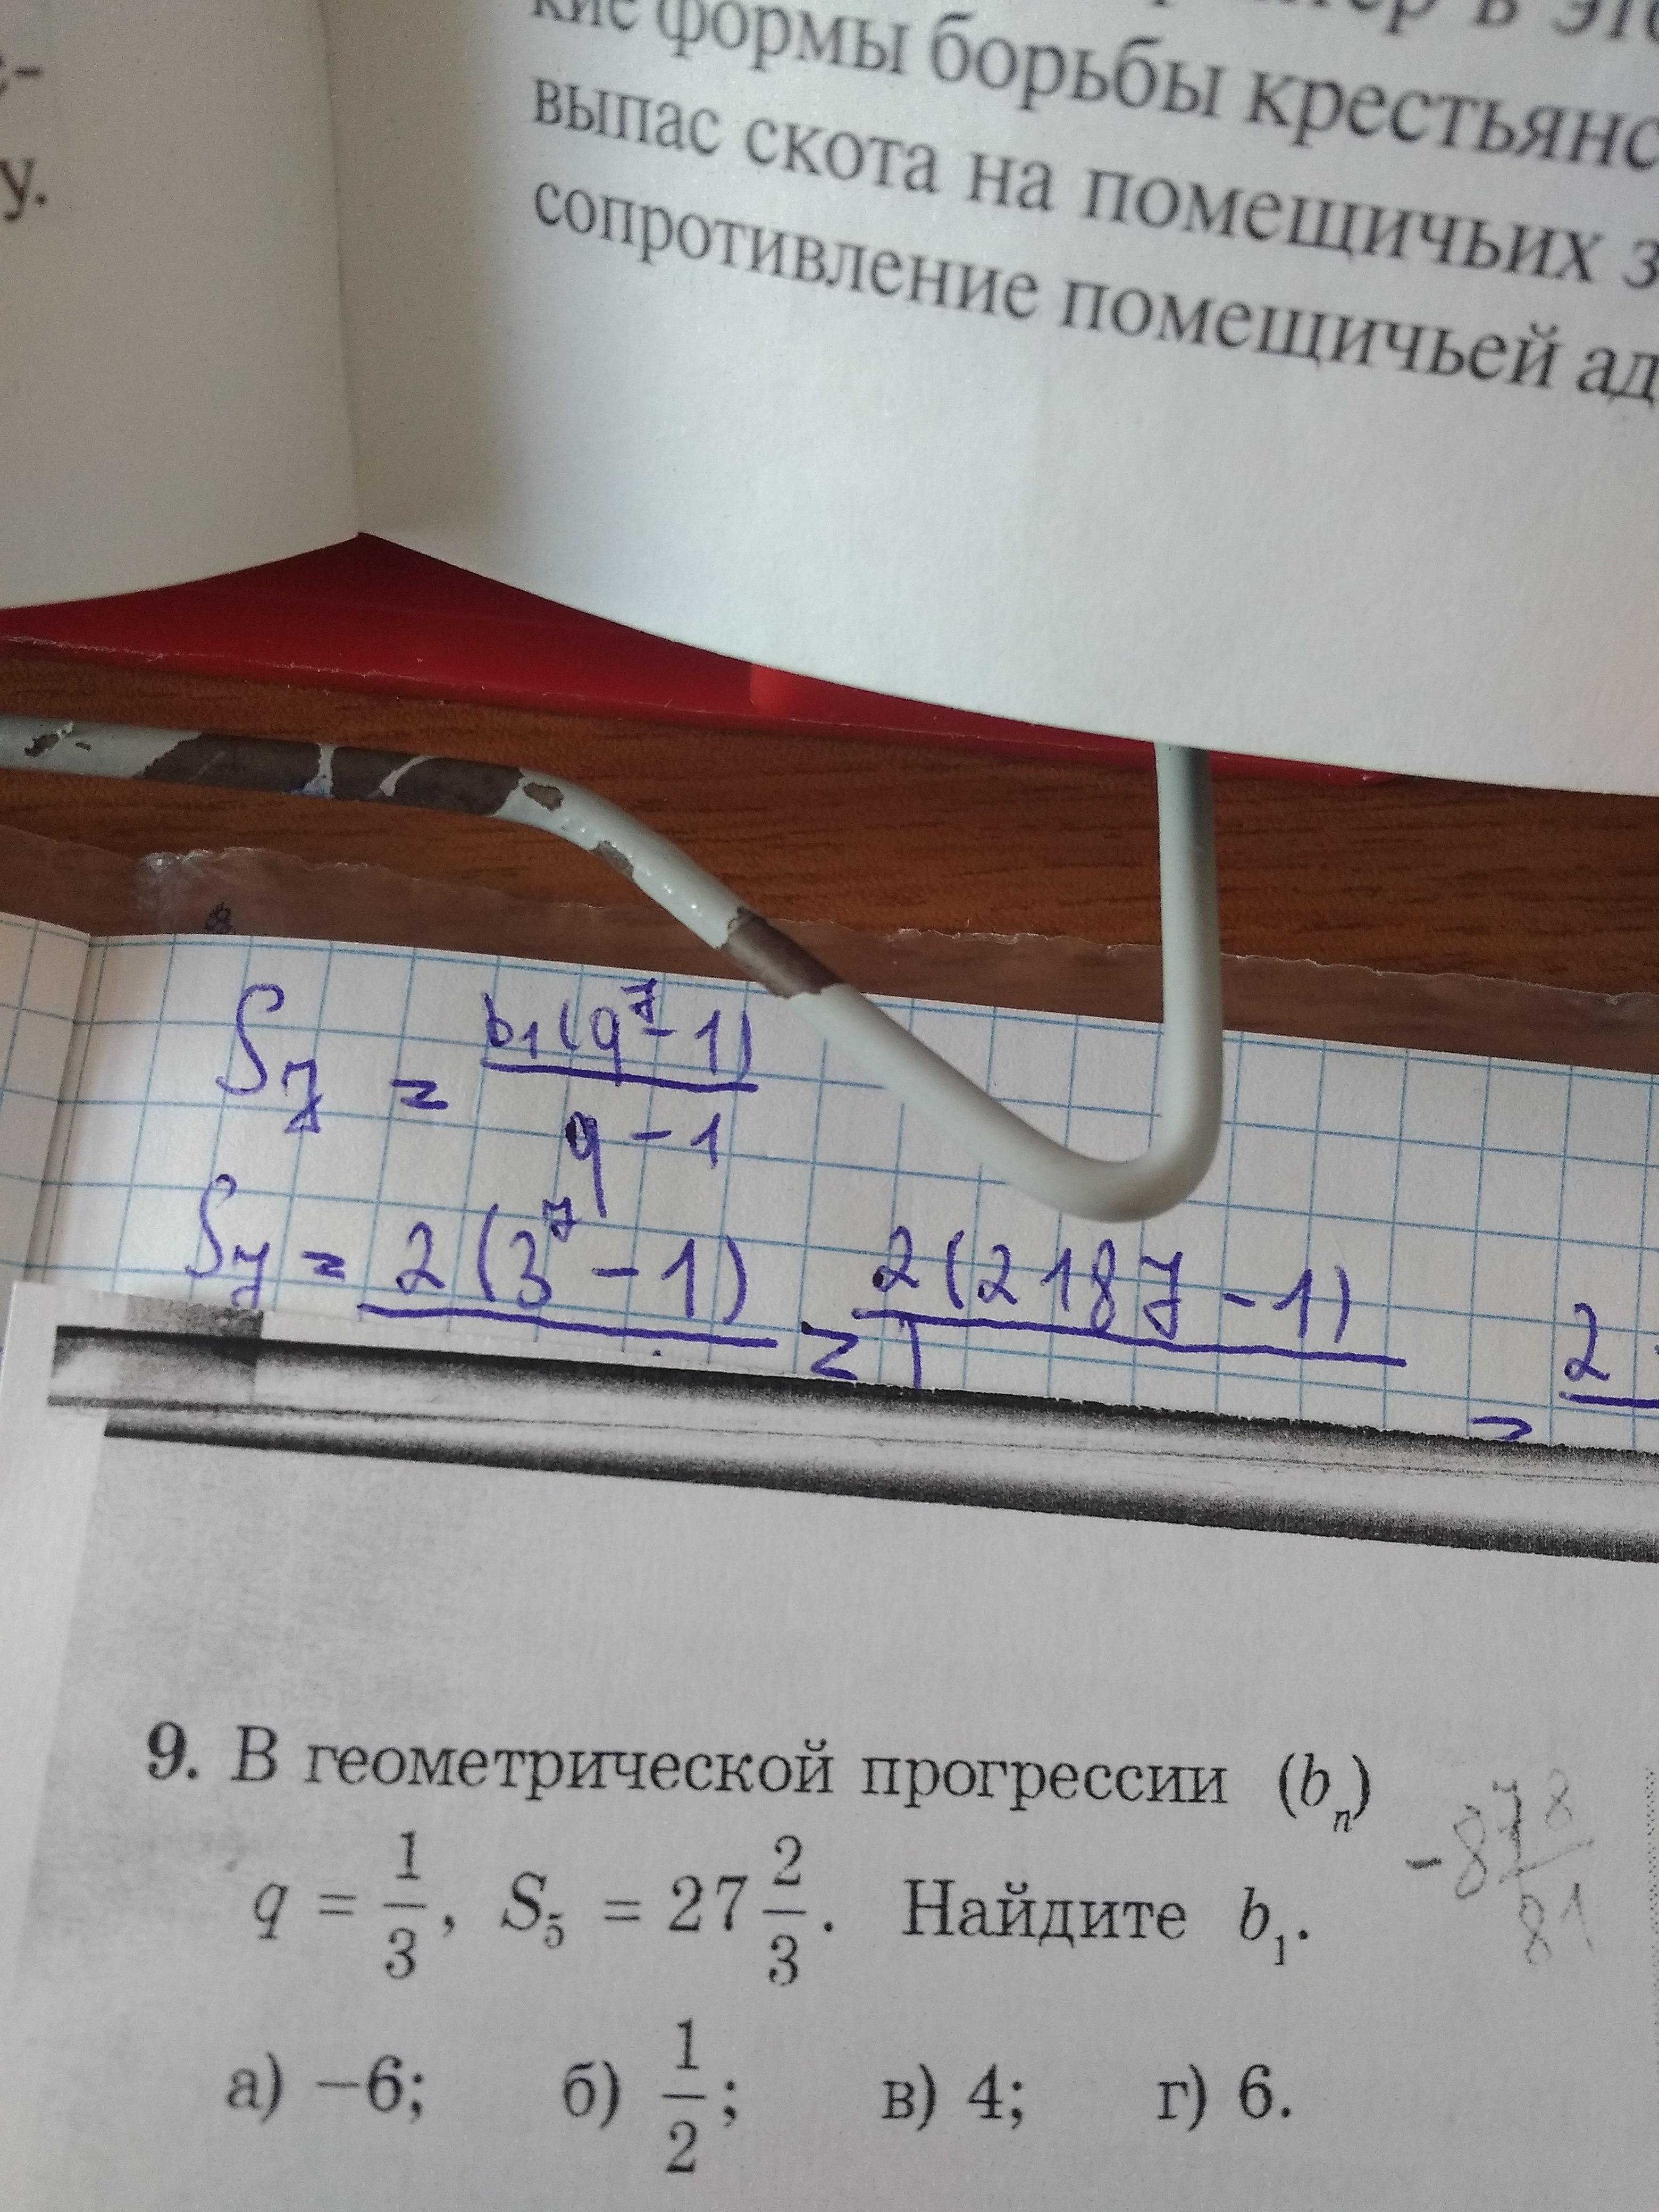 у.
кие формы борьбы
выпас скота на помещичьих
сопротивление помещичьей
S₇ = b₁(q⁷-1)
q-1
S₇ = 2(3⁷-1) = 2(2187-1) = 2
9. В геометрической прогрессии (bₙ)
q = 1/3, S₅ = 27 2/3. Найдите b₁.
-878
81
а) −6; б) 1/2; в) 4; г) 6.